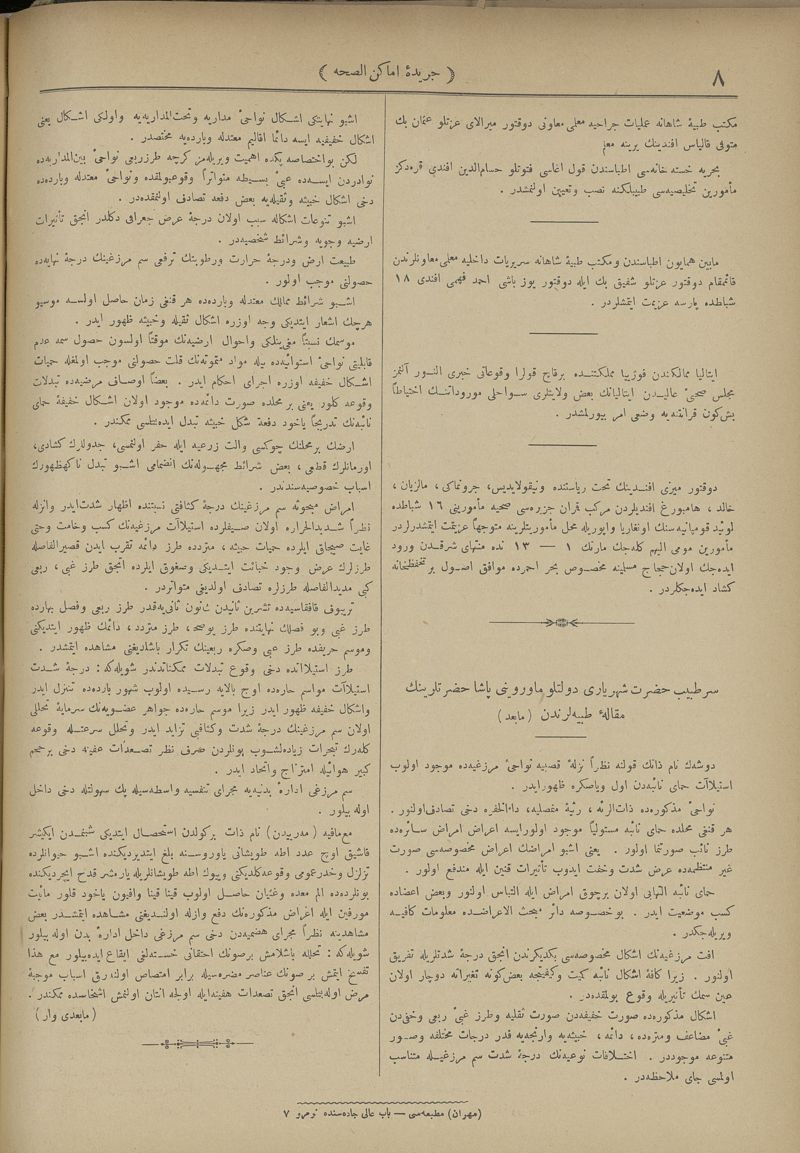 ٨
( جريدۀ اماكن الصحه )
مكتب طبيۀ شاهانه عمليات جراحيه معلمى معاونى دوقتور ميرالاى عزتلو عثمان بك
متوفى قالياس افندينك يرينه معلم
بحريه خسته خانه‌سى اطباسندن قول اغاسى فتوتلو حسام‌الدين افندى قره‌دكز
مأمورين تخليصيه‌سى طبيبلكنه نصب وتعيين اولنمشدر .
مابين همايون اطباسندن ومكتب طبيۀ شاهانه سريريات داخليه معلمى معاونلرندن
قائممقام دوقتور عزتلو شفيق بك ايله دوقتور يوز باشى احمد فهمى افندى ١٨
شباطده پارسه عزيمت ايتمشلردر .
ايتاليا ممالكندن قوزيبا مملكتنده برقاچ قولرا وقوعاتى خبرى النـور آلنمز
مجلس صحئ عاليدن ايتاليانك بعض ولايتلرى سـواحلى موروداتنـك احتياطاً
بش‌كون قرانتينه وضعى امر بيورلمشدر .
دوقتور ميزى افندينك تحت رياستنده ونيقولايديس، جرونماكى ، مالزيان ،
خالد ، هامبورغ افنديلردن مركب قمران جزيره‌سى صحيه مأمورينى ١٦ شباطده
لوئيد قومپانيه‌سنك اونغاريا واپوريله محل مأموريتلرينه متوجهاً عزيمت ايتمشلردر
مأمورين مومى اليهم كله‌جك مارتك ١ — ١٣ نده منتهاى شرقـدن ورود
ايده‌جك اولان حجاج مسلمينه مخصوص بحر احمرده موافق اصـول بر تحفظخانه
كشاد ايده‌جكلردر .
سرطبيب حضرت شهريارى دولتلو ماورينى پاشا حضرتلرينك
مقالۀ طبيه‌لرندن ( مابعد )
دوشه‌ك نام ذاتك قولنه نظراً نزلۀ قصبيه نواحئ مرزغيه‌ده موجود اولوب
استيلاآت حماى نائبه‌دن اول وياصكره ظهور ايدر .
نواحئ مذكوره‌ده ذات‌الرئه ، رثيۀ مفصليه، داءالحفره دخى تصادف‌اولنور .
هر قنغى محلده حماى نائبه مستولياً موجود اولورايسه اعراض امراض سـائره‌ده
طرز نائب صورتنما اولور . يعنى اشبو امراضك اعراض مخصوصه‌سى صورت
غير منتظمه‌ده عرض شدت وخفت ايدوب تأثيرات قنين ايله مندفع اولور .
حماى نائبۀ التهابى اولان برچوق امراض ايله التباس اولنور وبعض اعضاده
كسب موضعيت ايدر . بوخصوصه دائر مبحث الاعراضـده معلومات كافيه
ويريله‌جكدر .
افت مرزغيه‌نك اشكال مخصوصه‌سى يكديكرندن انجق درجۀ شدتلريله تفريق
اولنور . زيرا كافۀ اشكال نائبه كميت وكيفيتجه بعض‌كونه تغيراته دوچار اولان
عين سمك تأثيريله وقوع بولمقده‌در .
اشكال مذكوره‌ده صورت خفيفه‌دن صورت ثقليه وطرز غبئ ربعى وخفى‌دن
غبئ مضاعف ومتردده، دائمه ، خبيثه‌يه وارنجه‌يه قدر درجات مختلفه وصـور
متنوعه موجوددر . اختـلافات نوعيه‌نك درجۀ شدت سم مرزغيـله متناسب
اولمسى جاى ملاحظه‌در .
اشبو نهايتكى اشـكال نواحئ مداريه وتحت‌المداريه‌يه واولكى اشـكال يعنى
اشكال خفيفيه ايسه دائما اقاليم معتدله وبارده‌يه مختصدر .
لكن بواختصاصه پك‌ده اهميت ويريله‌مز كرچه طرزربعى نواحئ بين‌المداريه‌ده
نوادردن ايسه‌ده غبئ بسيطه متواتراً وقوعبولمقده ونواحئ معتدله وبارده‌ده
دخى اشكال خبيثه وثقيله‌يه بعض دفعه تصادف اولنمقده‌در .
اشبو تنوعات اشكاله سبب اولان درجۀ عرض جغرافى دكلدر انجق تأثيرات
ارضيه وجويه وشرائط شخصيه‌در .
طبيعت ارض ودرجۀ حرارت ورطوبتك ترقى سم مرزغينك درجۀ نهايه‌ده
حصولنى موجب اولور .
اشـبو شرائط ممالك معتدله وبارده‌ده هر قنغى زمان حاصل اولسـه موسيو
هرچك اشعار ايتديكى وجه اوزره اشكال ثقيله وخبيثه ظهور ايدر .
موسمك نسبتاً صغنيلكى واحوال ارضيه‌نك موقتاً اولسون حصول سمه عدم
قابليتى نواحئ استوائيه‌ده بيله مواد متفوته‌نك قلت حصولنى موجب اولمغله حميات
اشـكال خفيفه اوزره اجراى احكام ايدر . بعضاً اوصـاف مرضيه‌ده تبدلات
وقوعه كلور يعنى بر محلده صورت دائمه‌ده موجود اولان اشـكال خفيفۀ حماى
نائبه‌نك تدريجاً ياخود دفعةً شكل خبيثه تبدل ايده‌بيلمسى ممكندر .
ارضك بر محلنك چوكمسى والت زرعيه ايله حفر اولنمسى، جدوللرك كشادى،
اورمانلرك قطعى ، بعض شرائط مجهـوله‌نك انضمامى اشبو تبدل ناكهظهورك
اسباب خصوصيه‌سندندر .
امراض مبحوثه سم مرزغينك درجۀ كثافتى نسبتنده اظهار شدت‌ايدر وانزله
نظراً شديدالحراره اولان صيفلرده استيلاآت مرزغيه‌نك كسب وخامت وحتى
غايت صيجاق ايلرده حميات خبيثه ، متردده طرز دائمه تقرب ايدن قصيرالفاصله
طرزلرك عرض وجود خباثت ايتديكى وصغوق ايلرده انجق طرز غبى ، ربعى
كبى مديدالفاصله طرزلره تصادف اولنديغى متواتردر .
تريپوف قافقاسيه‌ده تشرين ثانيدن كانون ثانى‌يه‌قدر طرز ربعى وفصل بهارده
طرز غبى وبو فصلك نهايتنده طرز يومى، طرز متردد، دائمك ظهور ايتديكنى
وموسم حريفده طرز غبى وصكره ربعينك تكرار باشلاديغنى مشاهده ايتمشدر .
طرز استيلاآنده دخى وقوع تبدلات ممكناتدندر شويله‌كه : درجۀ شـدت
استيلاآت مواسم حاره‌ده اوج بالايه رسـيده اولوب شهور بارده‌ده تنزل ايدر
واشكال خفيفه ظهور ايدر زيرا موسم حاره‌ده جواهر عضـويه‌نك سرمايۀ تحللى
اولان سم مرزغينك درجۀ شدت وكثافتى تزايد ايدر وتحلل سرعتله وقوعه
كله‌رك تبخرات زياده‌لشـوب بونلردن صرف نظر تصـعدات عفينه دخى برحجم
كبير هوائيله امتزاج واتحاد ايدر .
سم مرزغى ادارۀ بدنيه‌يه مجراى تنفسيه واسطه‌سيله پك سهولتله دخى داخل
اوله بيلور .
مع‌مافيه ( مه‌ريدن ) نام ذات بركولدن استحصال ايتديكى شبنمـدن ايكيشر
قاشيق اوچ عدد اطه طوشانى ياوروسـنه بلع ايتديرديكنده اشـبو حيوانلرده
تزلزل وخدرعمومى وقوعه‌كلديكنى وبيوك اطه طوشانلريله يارمشر قدح ايچرديكنده
بونلرده‌ده الم معده وغثيان حاصـل اولوب قينا قينا وافيون ياخود قلور مائيت
مورفين ايله اغراض مذكوره‌نك دفع وازاله اولنديغنى مشاهده ايتمشـدر بعض
مشاهديته نظراً مجراى هضميه‌دن دخى سم مرزغى داخل ادارۀ بدن اوله بيلور
شويله‌كه : تحلله باشلامش برصونك احتقانى خسـته‌لغنى ايقاع ايده‌بيلور مع هذا
تفسخ ايتمش بر صونك عناصر مضره‌سيله برابر امتصاص اولنه‌رق اسباب موجبۀ
مرض اوله‌بيلمسى انجق تصعدات هفينه‌ايله اولجه انتان اولنمش اشخاصده ممكندر .
( مابعدى وار )
(مهران) مطبعه‌سى — باب عالى جاده‌سنده نومرو ٧